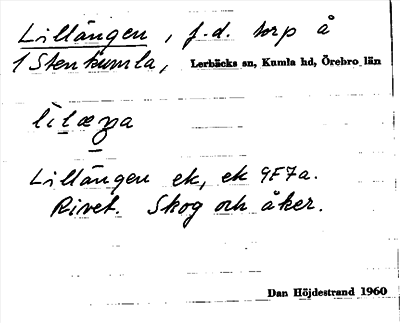 Lillängen, f.d. torp å
1 Stenkumla, Lerbäcks sn, Kumla hd, Örebro län
Lillängen ek, ek 9F7a.
Rivet. Skog och åker.
Dan Höjdestrand 1960